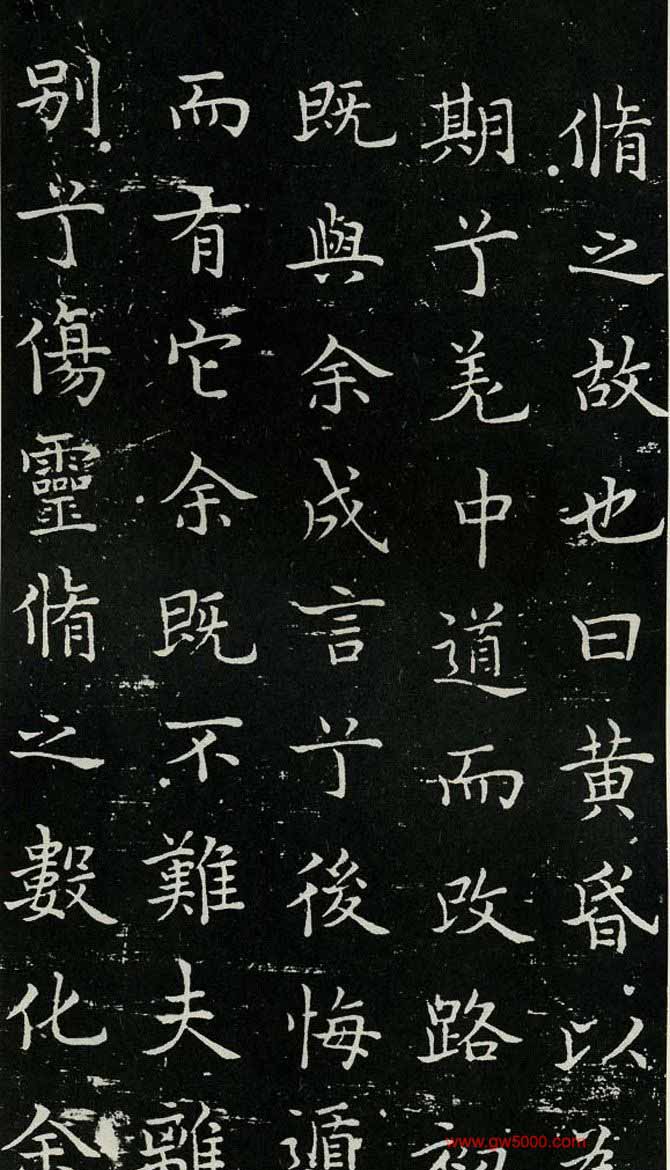 脩之故也曰黄昏以為
期兮羌中道而改路初
既與余成言兮後悔遁
而有它余既不難夫離
别兮傷靈脩之數化余
www.gw5000.com